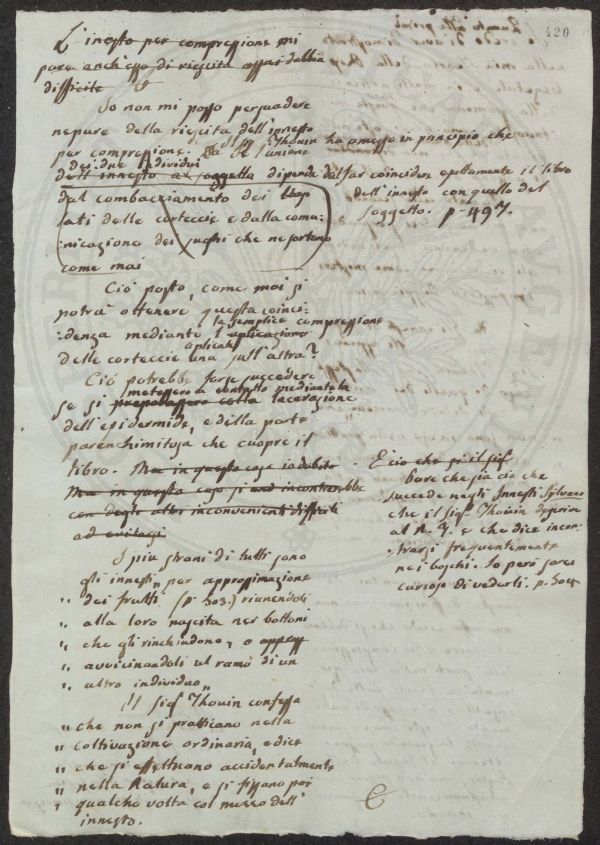 420
L'innesto per compressione mi
pare anch'esso di riescita assai dubbia
difficile
Io non mi posso persuadere
neppure della riescita dell'innesto
per compressione. Il Sigr Thouin ha ammesso in principio che l'unione
dei due Individui
dell'innesto al soggetto dipende dal far coincidere esattamente il libro
dell'innesto con quello del
soggetto. p. 497.
dal combacciamento dei
lati delle corteccie e dalla comu=
nicazione dei sughi che ne sortono
come mai
Ciò posto, come mai si
potrà ottenere questa coinci=
denza mediante la semplice compressione
l'aplicazione
delle corteccie aplicate una sull'altra?
Ciò potrebbe forse succedere
se si mettessero a contatto mediante la
preparassero colla lacerazione
dell'epidermide, e della parte
parenchimitosa che cuopre il
libro. Ma in questo caso io dubito
Ma in questo caso si incontrarebbe
con degli altri inconvenienti difficili
ad evitarsi
E ciò che si il sigr
pare che sia ciò che
succede negli Innesti Silvano
che il Sigr Thouin descrive
al N. 7. e che dice incon=
trarsi frequentemente
nei boschi. Io però sarei
curioso di vederli. p.
I più strani di tutti sono
gli innesti „ per approssimazione
„ dei frutti (p. 303.) riunendoli
„ alla loro nascita nei bottoni
„ che gli rinchiudono, o
„ avvicinandoli al ramo di un
„ altro individuo „
Il Sigr Thouin confessa
„ che non si pratticano nella
„ coltivazione ordinaria, e dice
„ che si effettuano accidentalmente
„ nella Natura, e si fissano poi
„ qualche volta col mezzo dell'
innesto.